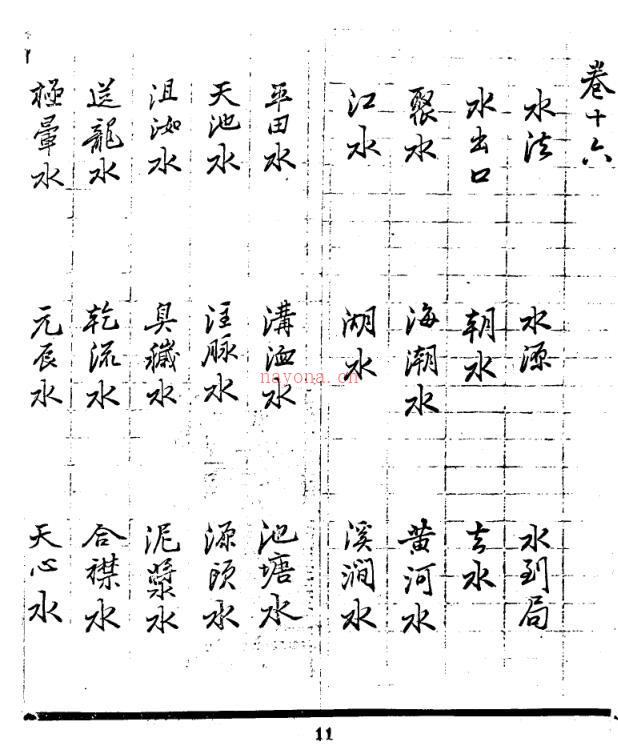 卷十六
水法 水源 水到局
水出口 朝水 去水
聚水 海潮水 黄河水
江水 湖水 溪澗水
平田水 溝洫水 池塘水
天池水 注脉水 源頭水
沮洳水 臭穢水 泥漿水
送龍水 乾流水 合襟水
極暈水 元辰水 天心水
nayona.cn
11